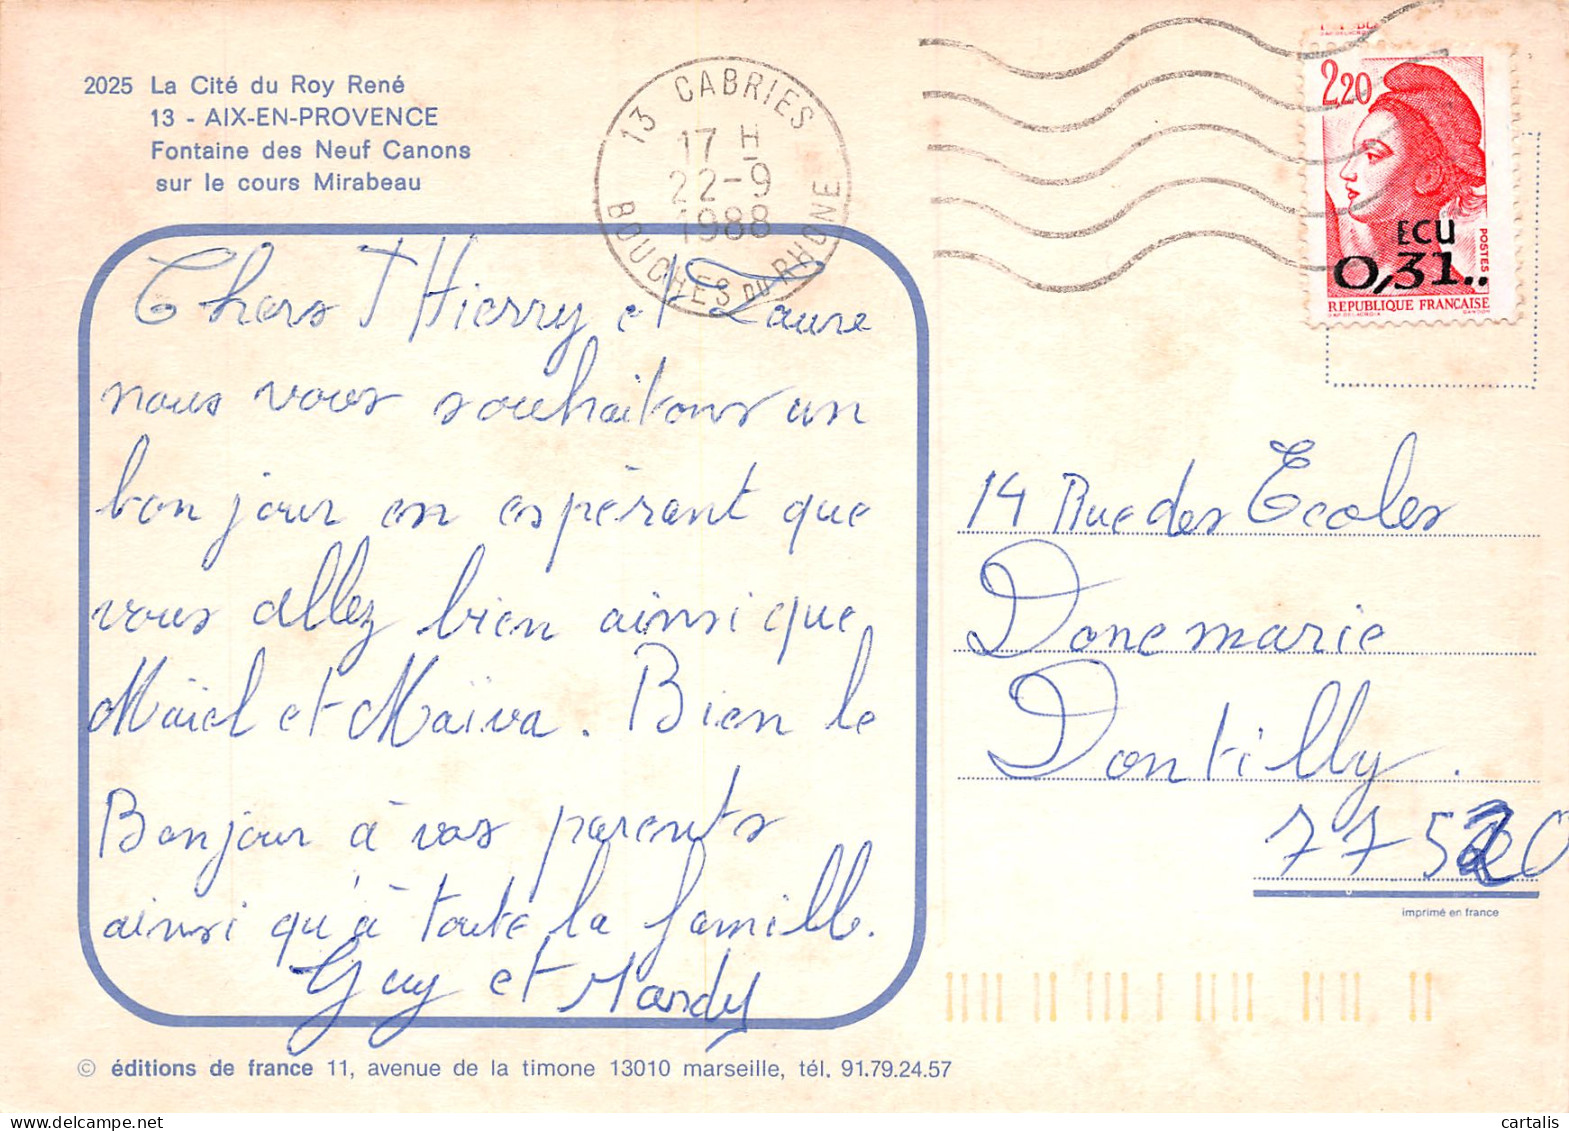 2025 La Cité du Roy René
13 - AIX-EN-PROVENCE
Fontaine des Neuf Canons
sur le cours Mirabeau
13 CABRIES
17 H
22-9
1988
BOUCHES DU RHONE
2,20
ECU
0,31..
POSTES
REPUBLIQUE FRANÇAISE
Chers THierry et Laure
nous vous souhaitons un
bon jour en espérant que
vous allez bien ainsi que
Maïel et Maïva. Bien le
Bonjour à vos parents
ainsi qu'à toute la famille.
Guy et Mandy
14 Rue des Ecoles
Donemarie
Dontilly.
77520
imprimé en france
© éditions de france 11, avenue de la timone 13010 marseille, tél. 91.79.24.57
cartalis